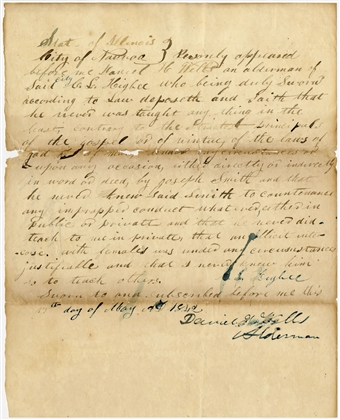 State of Illinois }
City of Nauvoo } Personly appeared
before me Daniel H Wells an alderman of
Said City C. L. Higbee who being duly Sworn
according to Law deposeth and Saith that
he never was taught any thing in the
least contrary to the Strictest principals
of the gospel or of virtue or of the laws of
God or
upon any occasion either directly or indirectly
in word or deed, by Joseph Smith and that
he never knew Said Smith to countenance
any improper conduct what ever either in
public or private and that he never did
teach to me in private that an illicit inter
cose with females was under circumstances
justifiable and that I never knew him
so to teach others.
L Higbee
Sworn to and subscribed before me this
day of May
Daniel H Wells
Alderman